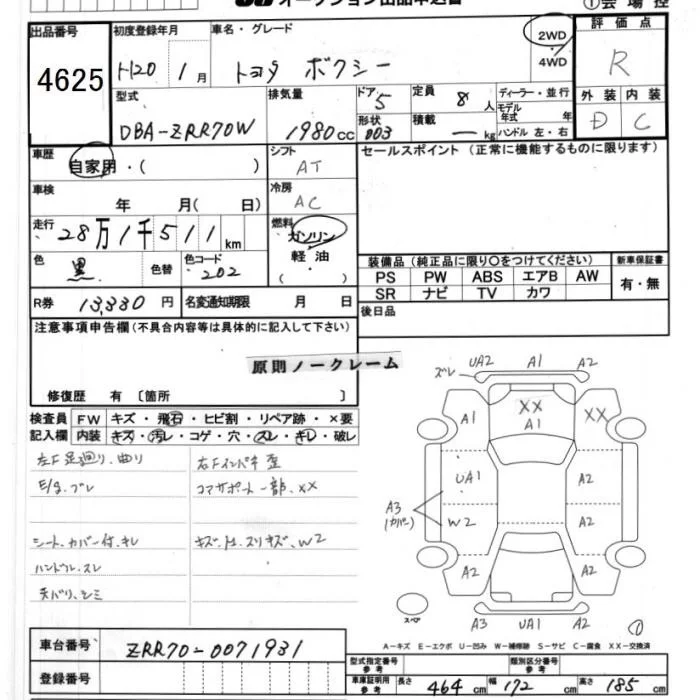 オークション出品申込書
①会場控
出品番号
4625
初度登録年月
H20 1月
車名・グレード
トヨタ ボクシー
2WD
・
4WD
評価点
R
外装 内装
D C
型式
DBA-ZRR70W
排気量
1980cc
ドア 5
形状 003
定員 8人
積載 ー kg
ディーラー・並行
モデル年式 年
ハンドル 左・右
車歴
自家用・( )
シフト
AT
セールスポイント(正常に機能するものに限ります)
車検
年 月( 日)
冷房
AC
走行
28万1千511km
燃料
ガソリン
軽油
( )
色
黒 色替
色コード
202
装備品(純正品に限り○をつけてください)
新車保証書
PS PW ABS エアB AW
SR ナビ TV カワ
有・無
R券 13,330円
名変通知期限 月 日
後日品
注意事項申告欄(不具合内容等は具体的に記入して下さい)
原則ノークレーム
修復歴 有〔箇所 〕
検査員記入欄
FW キズ・飛石・ヒビ割・リペア跡・×要
内装 キズ・汚レ・コゲ・穴・スレ・キレ・破レ
左F足廻り、曲り
右Fインパネ歪
E/g.ブレ
コアサポート一部、XX
シート、カバー付、キレ
ハンドル、スレ
天バリ、シミ
ズレ UA2 A1 A2
A1 XX A1 XX
UA1 A2
A3
(カバー)
W2 A2
A2 A2
スペア
A3 UA1 A2
A-キズ E-エクボ U-凹み W-補修跡 S-サビ C-腐食 XX-交換済
車台番号
ZRR70-0071931
登録番号
型式指定番号
参考
類別区分番号
参考
車庫証明用
参考
長さ 464cm 幅 172cm 高さ 185cm